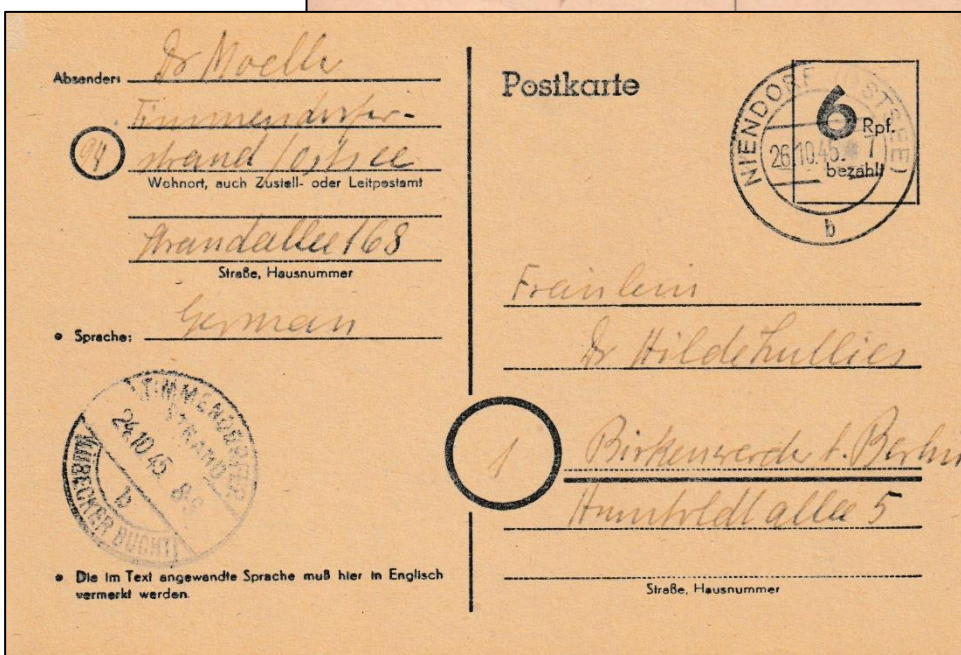 Absender: Dr Moelle
Timmendorfer-
24
strand /ostsee
Wohnort, auch Zustell- oder Leitpostamt
Strandallee 168
Straße, Hausnummer
• Sprache: German
TIMMENDORFER
STRAND
24.10.45. 8-9
b
(LÜBECKER BUCHT)
• Die im Text angewandte Sprache muß hier in Englisch
vermerkt werden.
Postkarte
6 Rpf.
bezahlt
NIENDORF (OSTSEE)
26.10.45.
b
Fräulein
Dr Hilde Lullies
1
Birkenwerder b. Berlin
Humboldtallee 5
Straße, Hausnummer